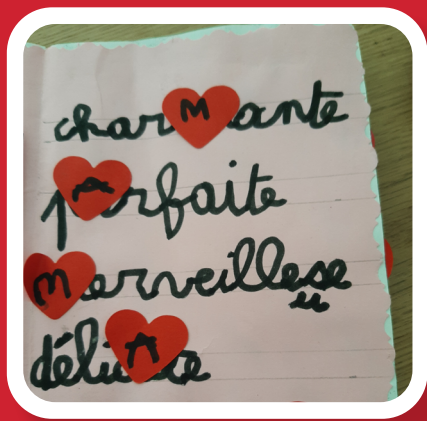 charMante
pArfaite
Merveillese
u
déliCAte